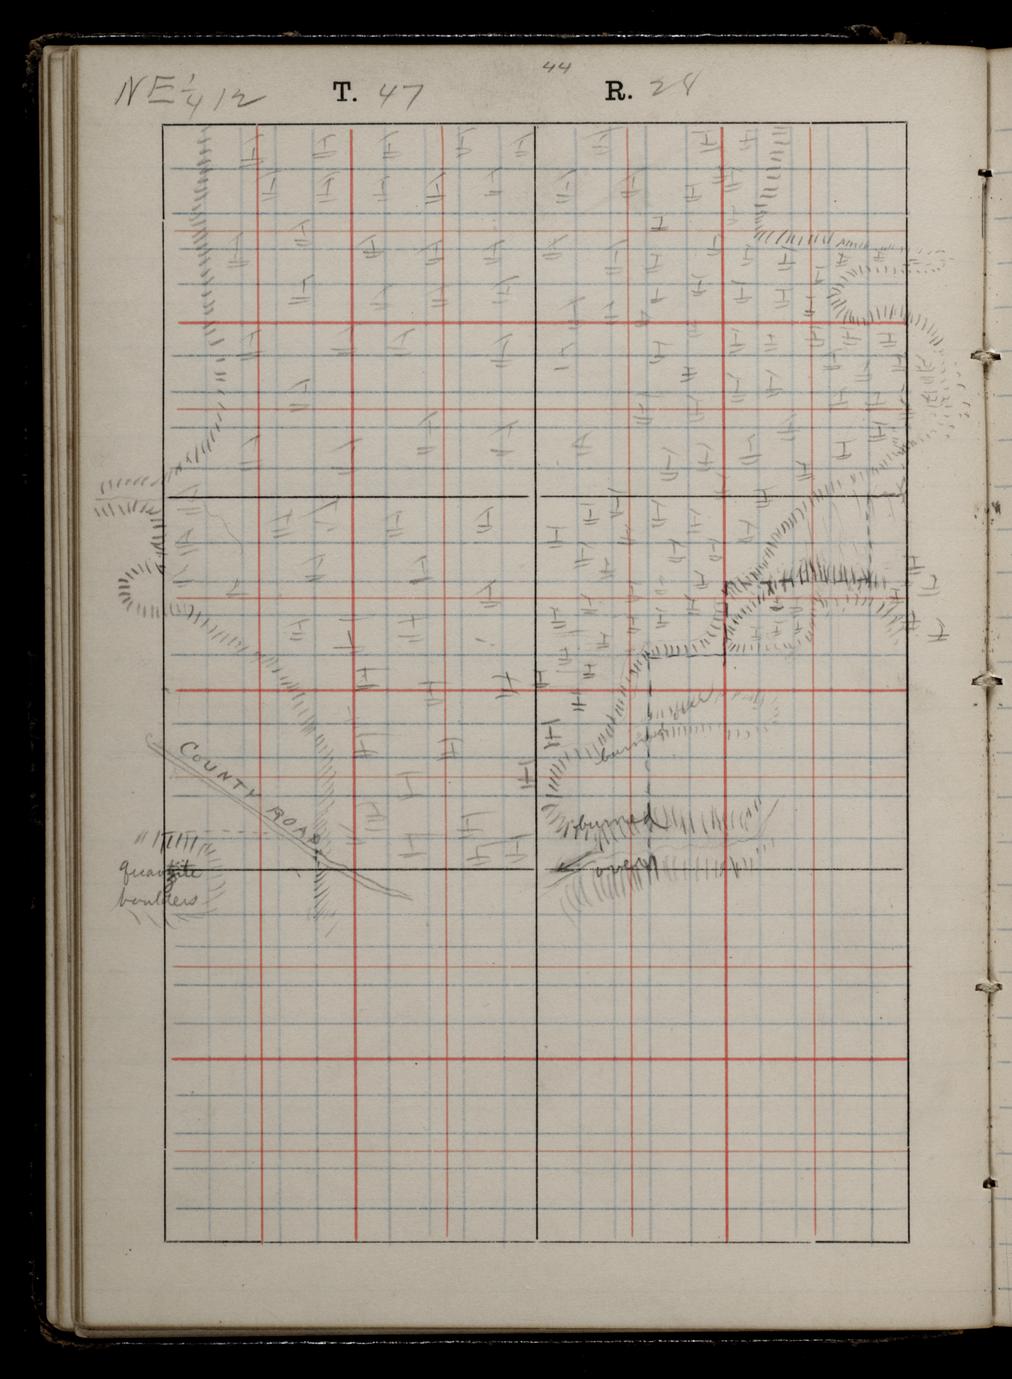 44
NE 1/4 12 T. 47 R. 28
COUNTY ROAD
burned
open
quartzite
boulders